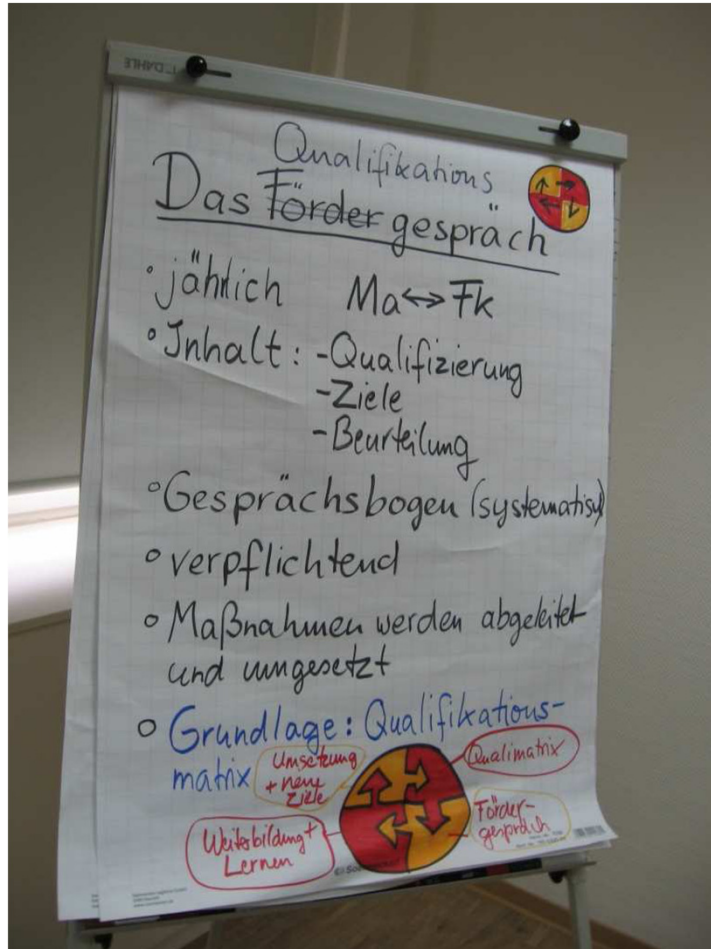 DAHLE
Qualifikations
Das Förder gespräch
• jährlich Ma↔Fk
• Inhalt: -Qualifizierung
-Ziele
-Beurteilung
• Gesprächsbogen (systematisch)
• verpflichtend
• Maßnahmen werden abgeleitet
und umgesetzt
• Grundlage: Qualifikations-
matrix
Umsetzung
+ neue
Ziele
Qualimatrix
Förder-
gespräch
Weiterbildung +
Lernen